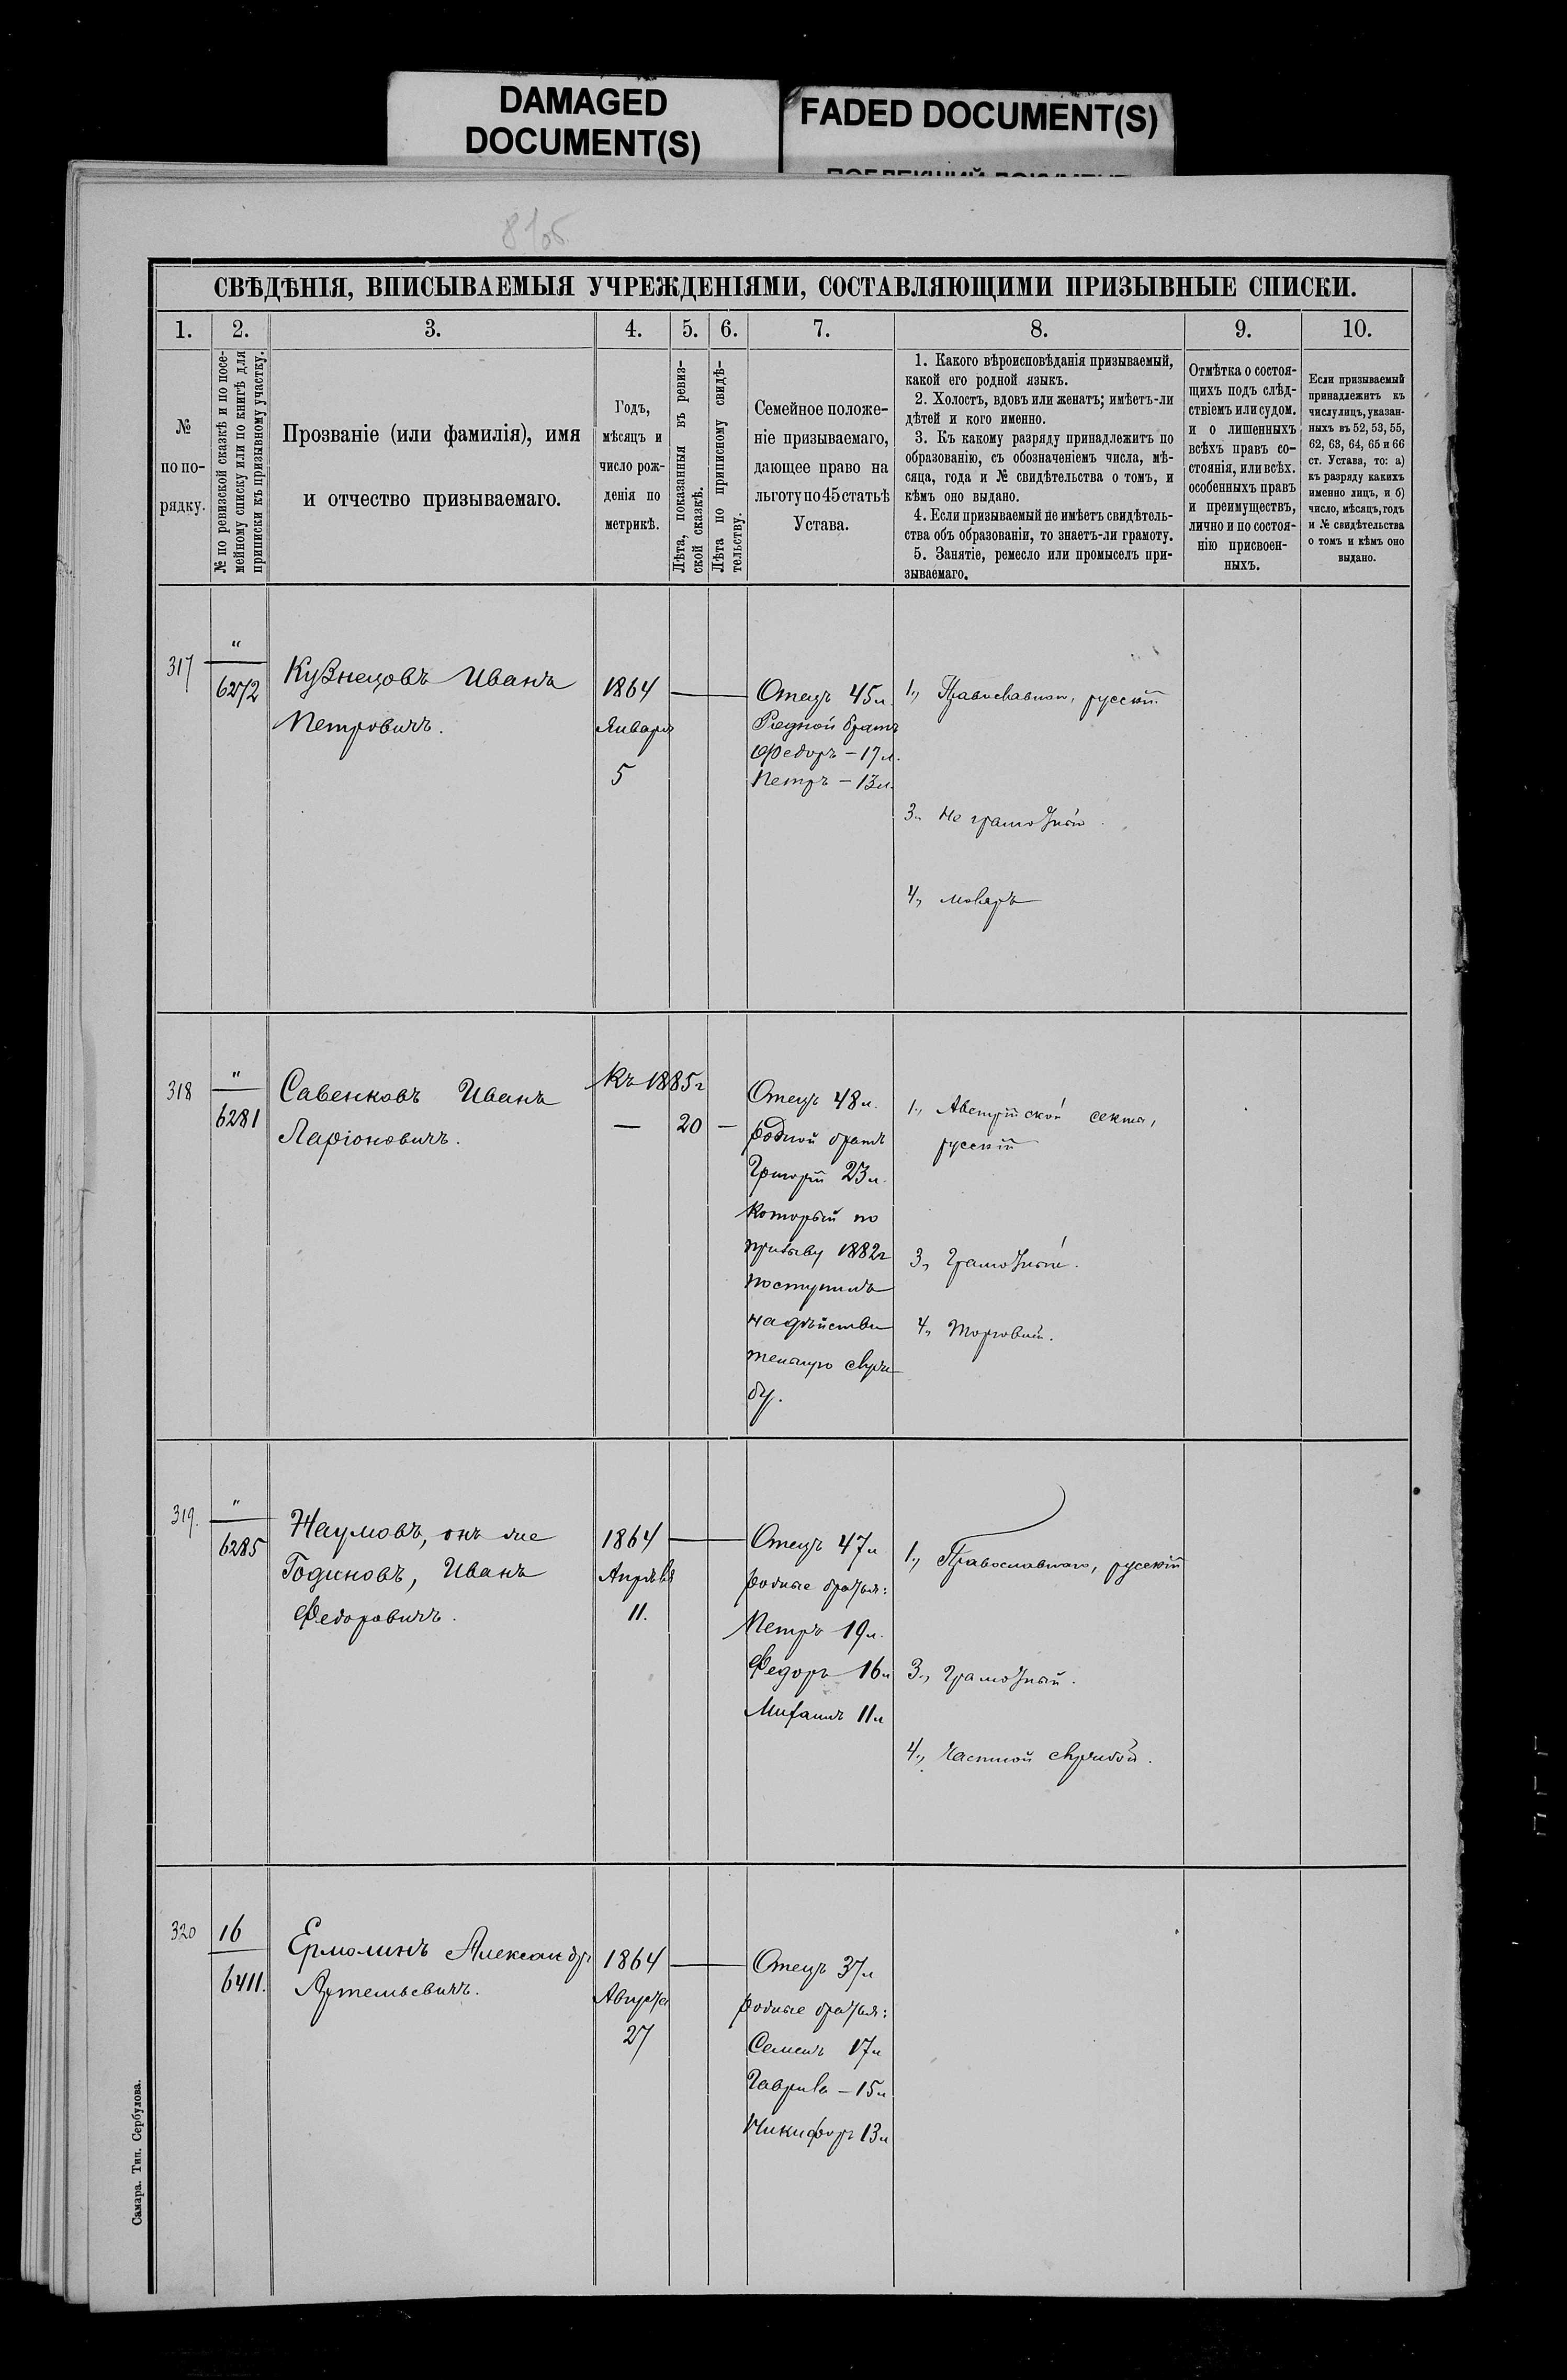 DAMAGED
DOCUMENT(S)
FADED DOCUMENT(S)
81об.
СВѢДѢНІЯ, ВПИСЫВАЕМЫЯ УЧРЕЖДЕНІЯМИ, СОСТАВЛЯЮЩИМИ ПРИЗЫВНЫЕ СПИСКИ.
1. 2. 3. 4. 5. 6. 7. 8. 9. 10.
№
по по-
рядку.
№ по ревизской сказкѣ и по посе-
мейному списку или по книгѣ для
приписки къ призывному участку.
Прозваніе (или фамилія), имя
и отчество призываемаго.
Годъ,
мѣсяцъ и
число рож-
денія по
метрикѣ.
Лѣта, показанныя въ ревиз-
ской сказкѣ.
Лѣта по приписному свидѣ-
тельству.
Семейное положе-
ніе призываемаго,
дающее право на
льготу по 45 статьѣ
Устава.
1. Какого вѣроисповѣданія призываемый,
какой его родной языкъ.
2. Холостъ, вдовъ или женатъ; имѣетъ-ли
дѣтей и кого именно.
3. Къ какому разряду принадлежитъ по
образованію, съ обозначеніемъ числа, мѣ-
сяца, года и № свидѣтельства о томъ, и
кѣмъ оно выдано.
4. Если призываемый не имѣетъ свидѣтель-
ства объ образованіи, то знаетъ-ли грамоту.
5. Занятіе, ремесло или промыселъ при-
зываемаго.
Отмѣтка о состоя-
щихъ подъ слѣд-
ствіемъ или судом.
и о лишенныхъ
всѣхъ правъ со-
стоянія, или всѣх.
особенныхъ правъ
и преимуществъ,
лично и по состоя-
нію присвоен-
ныхъ.
Если призываемый
принадлежитъ къ
числу лицъ, указан-
ныхъ въ 52, 53, 55,
62, 63, 64, 65 и 66
ст. Устава, то: а)
къ разряду какихъ
именно лицъ, и б)
число, мѣсяцъ, годъ
и № свидѣтельства
о томъ и кѣмъ оно
выдано.
317
"
6272
Кузнецовъ Иванъ
Петровичъ.
1864
Января
5
Отецъ 45 л.
Родной братъ
Федоръ – 17 л.
Петръ – 13 л.
1., Православнаго, русскій
3., Не грамотный.
4.,
318
"
6281
Савенковъ Иванъ
Ларіоновичъ.
Къ 1885 г
— 20 —
Отецъ 48 л.
родной братъ
Григорій 23 л.
который по
призыву 1882 г
поступилъ
на дѣйстви
тельную служ
бу.
1., Австрійской секты,
русскій
3., Грамотный.
4., Торговый.
319.
"
6285
Наумовъ, онъ же
Годиновъ, Иванъ
Федоровичъ.
1864
Апрѣля
11.
Отецъ 47 л
родные братья:
Петръ 19 л.
Федоръ 16 л
Михаилъ 11 л
1., Православнаго, русскій
3., Грамотный.
4., Частной службой.
320
16
6411.
Ермолинъ Александръ
Артемьевичъ.
1864
Августа
27
Отецъ 37 л
родные братья:
Семенъ 17 л
Гаврила – 15 л
Никифоръ 13 л
Самара. Тип. Сербулова.